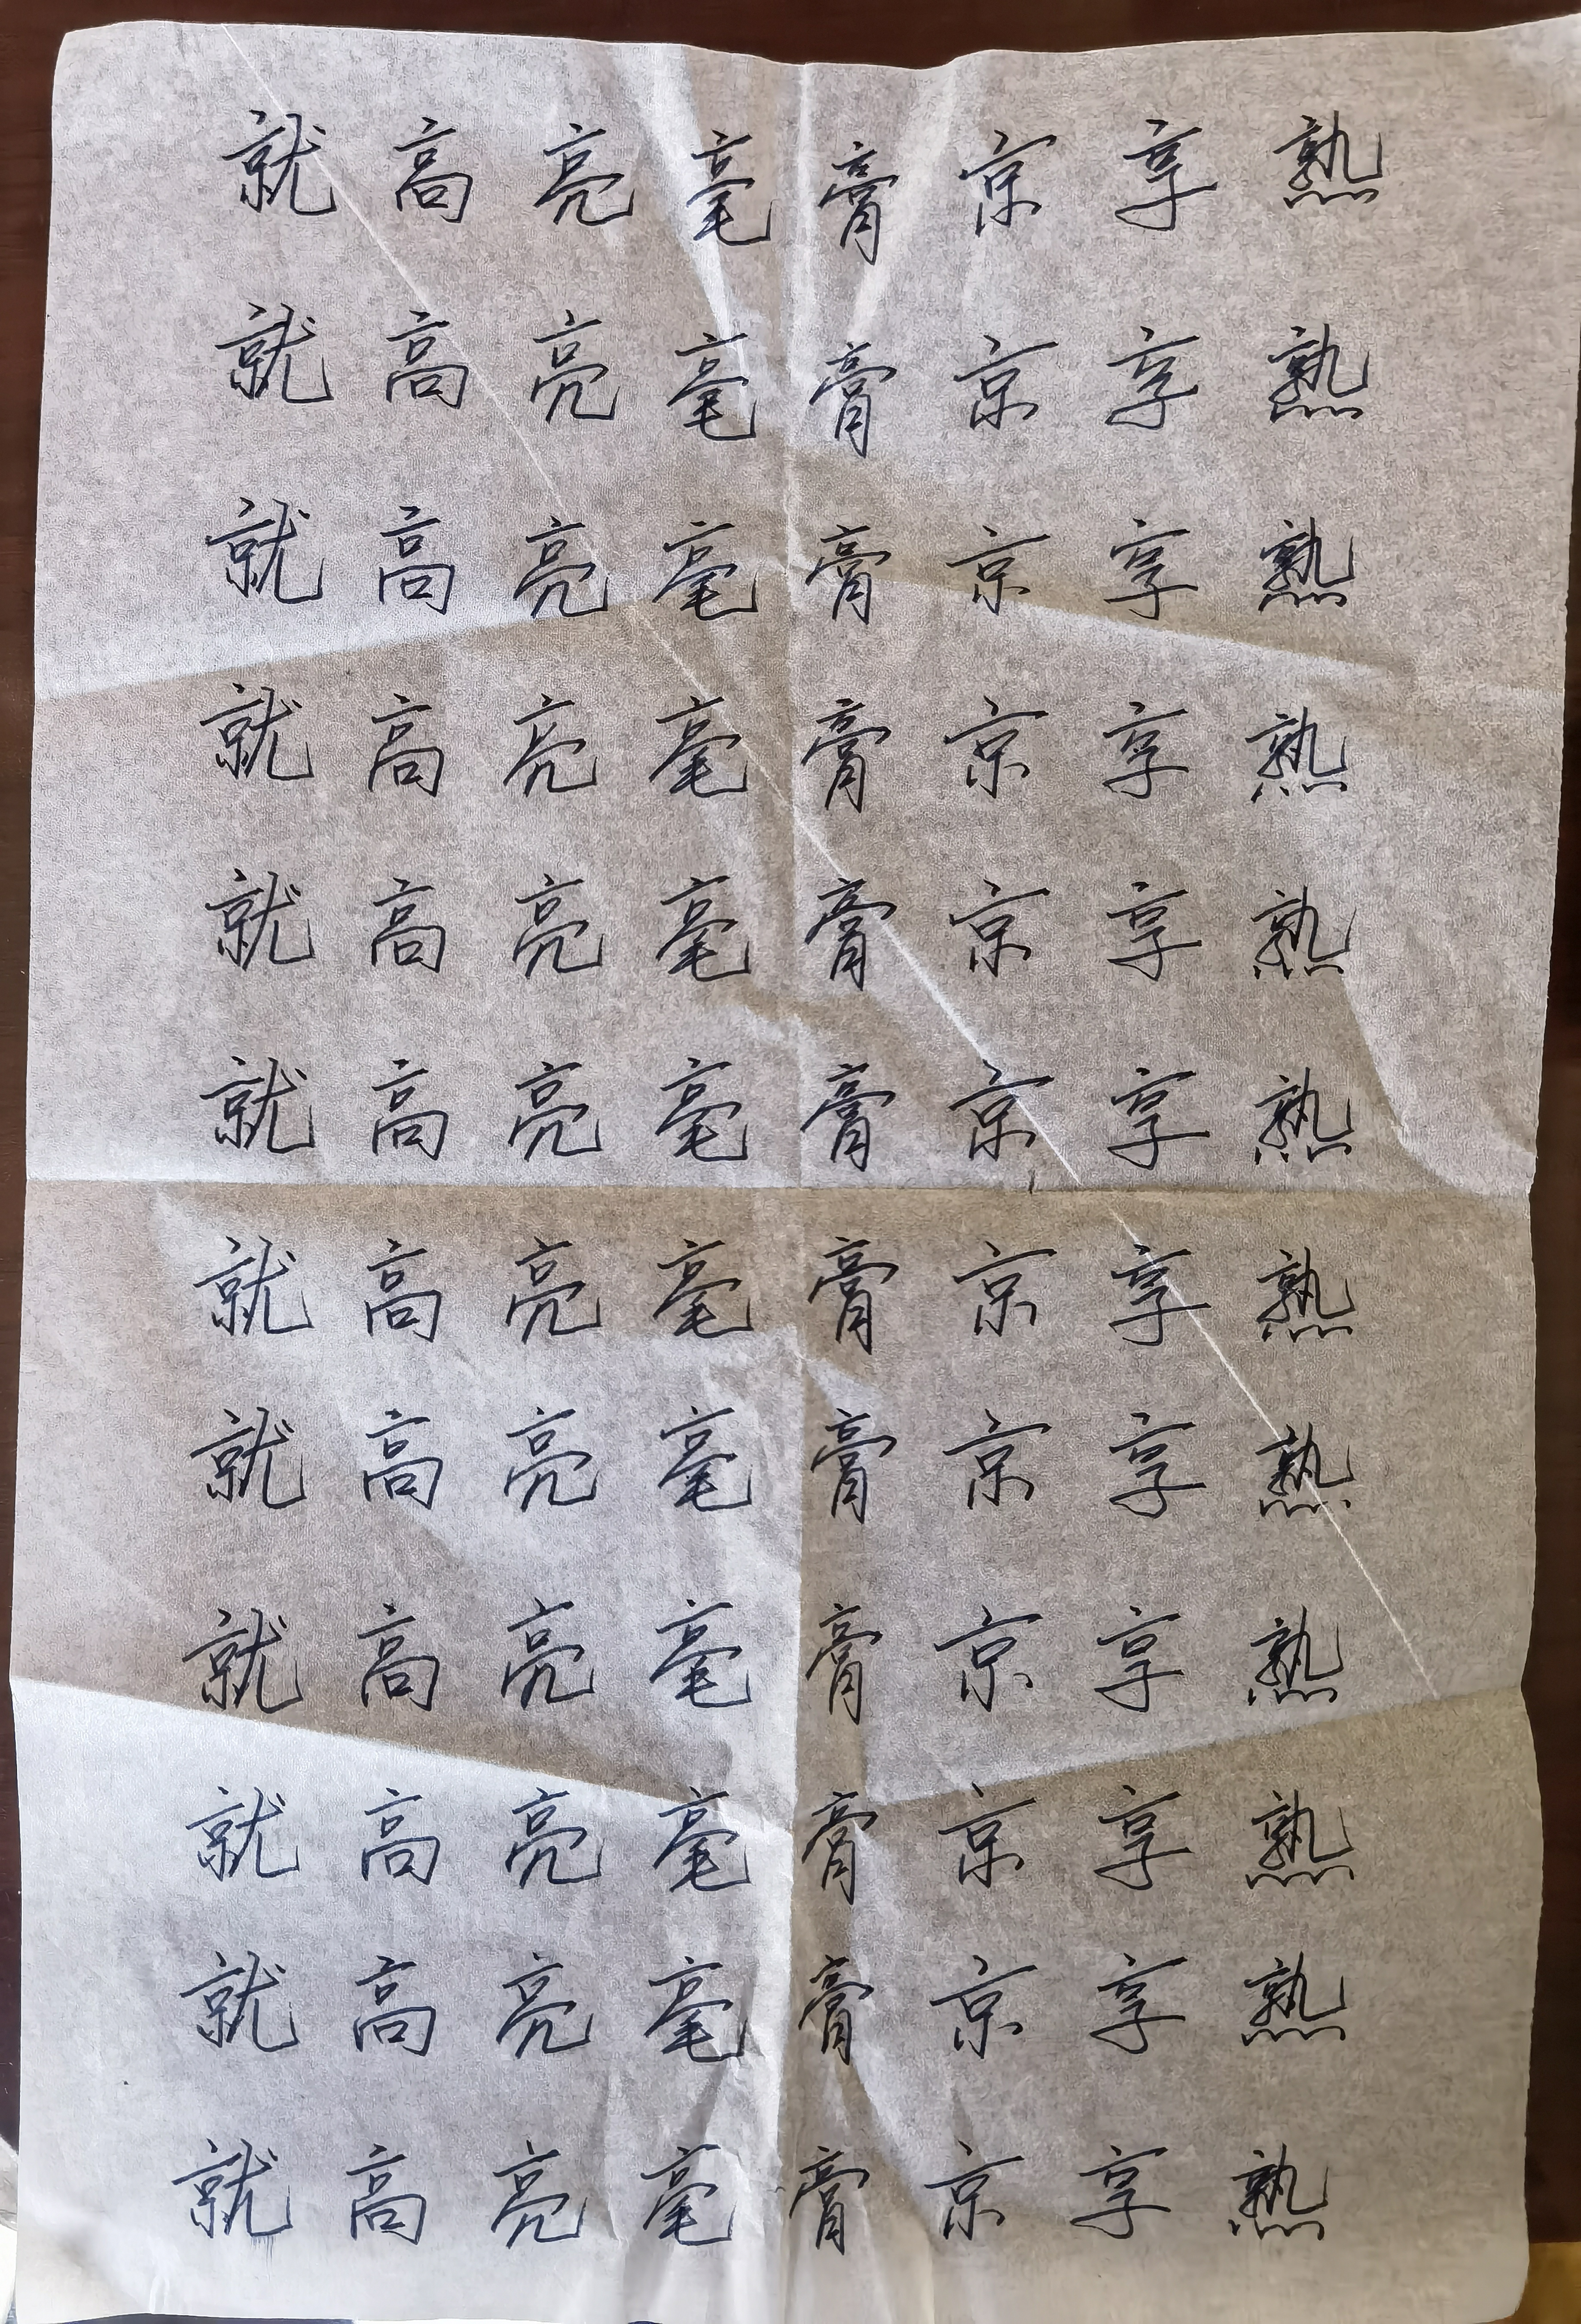 就高亮毫膏京享熟
就高亮毫膏京享熟
就高亮毫膏京享熟
就高亮毫膏京享熟
就高亮毫膏京享熟
就高亮毫膏京享熟
就高亮毫膏京享熟
就高亮毫膏京享熟
就高亮毫膏京享熟
就高亮毫膏京享熟
就高亮毫膏京享熟
就高亮毫膏京享熟